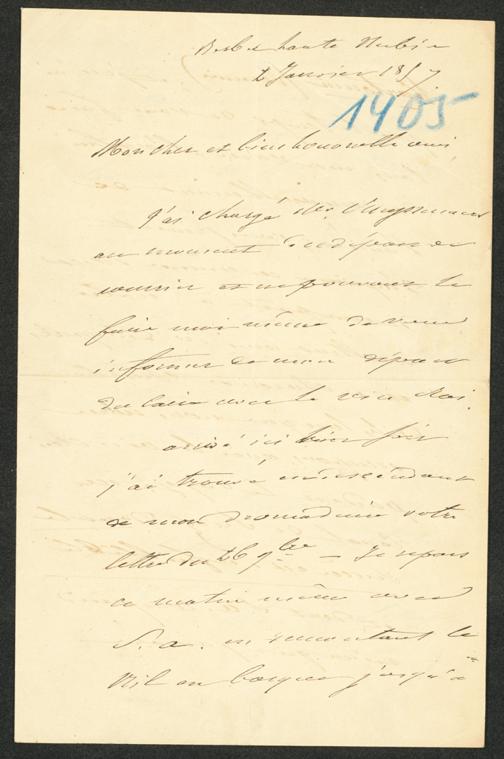 Berber haute Nubie
2 Janvier 1857
1405
Mon cher et bien honorable ami,
J'ai chargé Mr. Huyssmans
au moment du départ du
courrier et ne pouvant le
faire moi même de vous
informer de mon départ
du Caire avec le vice Roi.
arrivé ici hier soir
j'ai trouvé en descendant
de mon dromadaire votre
lettre du 26 9bre — Je repars
ce matin même avec
S. a. en remontant le
Nil en barque jusqu'à